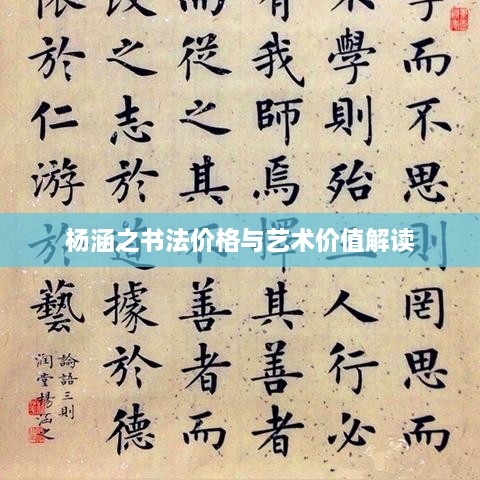 學而不思則罔思而
不學則殆三人行必
有我師焉擇其善者
而從之其不善者而
改之志於道據於德
依於仁游於藝
論語三則
潤堂楊涵之
杨涵之书法价格与艺术价值解读